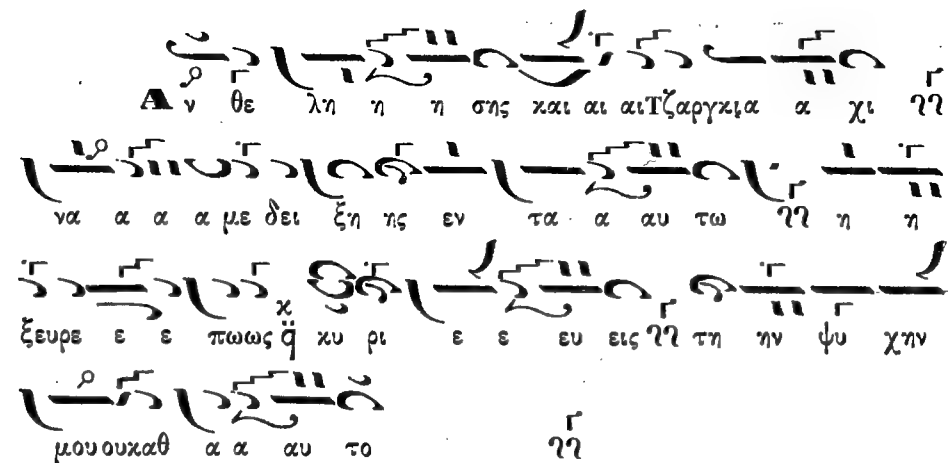 Α ν θε λη η η σης και αι αιΤζαργκια α χι
να α α α με δει ξη ης εν τα α αυ τω η η
ξευρε ε ε πωως κυ ρι ε ε ευ εις τη ην ψυ χην
μου ουκαθ α α αυ το